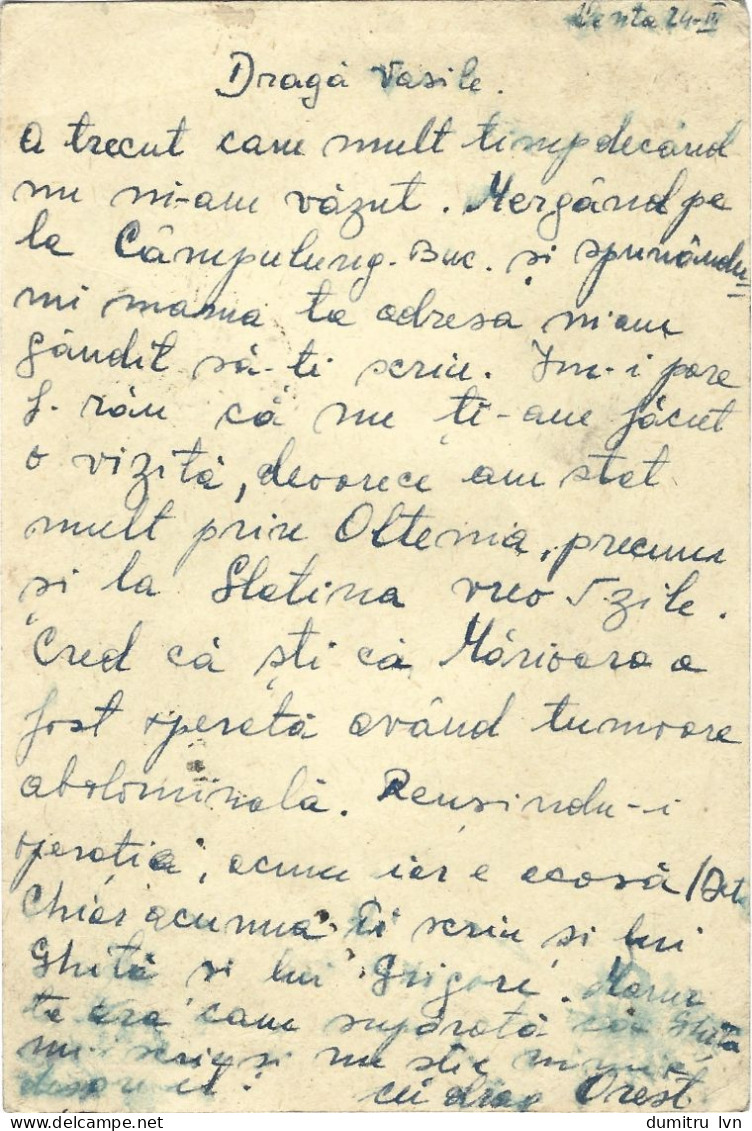 24-IV
Dragă Vasile.
a trecut cam mult timp decând
nu ni-am văzut. Mergând pe
la Câmpulung-Buc. și spunându-
mi mama ta adresa, ni-am
gândit să-ti scriu. Im-i pare
f. rău că nu ți-am făcut
o vizită, deoarece am stat
mult prin Oltenia, precum
și la Slatina vreo 5-zile.
Cred că ști că Mărioara a
fost operată având tumoare
abdominală. Reusindu-i
operația, acum iar e acasă /Deta
Chiar acumă ți scriu și lui
Ghiță și lui Grigore. Mama
ta era cam supărată că Ghiță
nu-i scrie și nu știe nimic
cu drag Orest
dumitru lvn